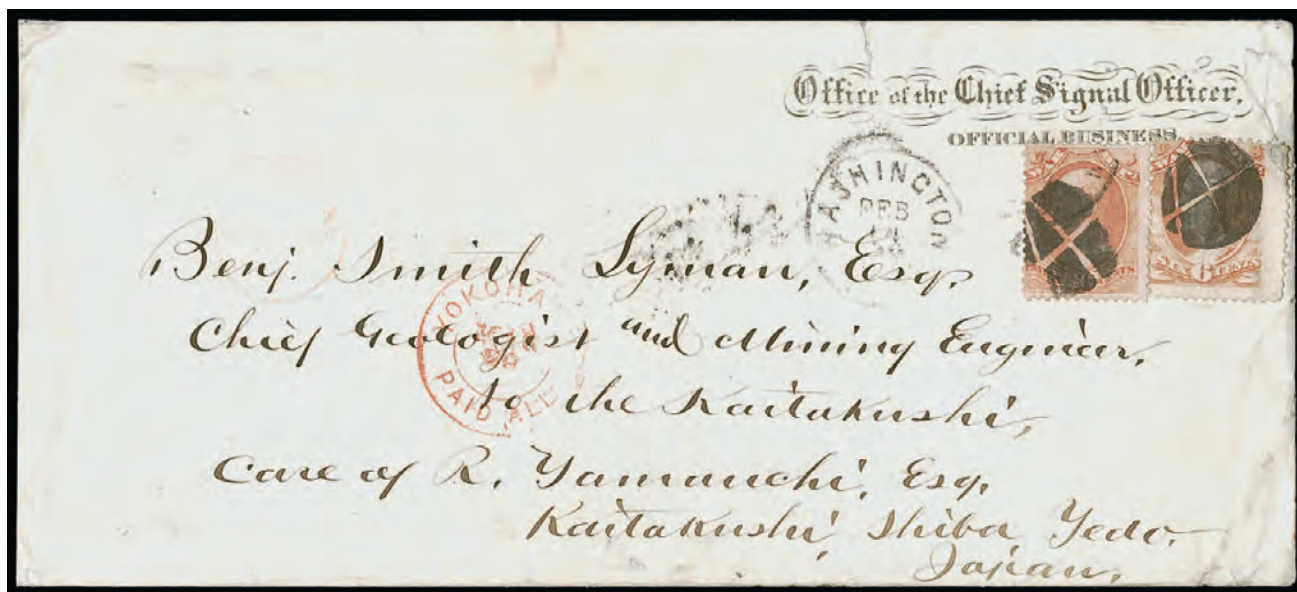 Office of the Chief Signal Officer,
OFFICIAL BUSINESS.
WASHINGTON
FEB
SIX 6 CENTS
Benj. Smith Lyman, Esq.
Chief Geologist and Mining Engineer,
to the Kaitakushi,
YOKOHAMA
PAID ALL
Care of R. Yamauchi, Esq.
Kaitakushi, Shiba, Yedo.
Japan.